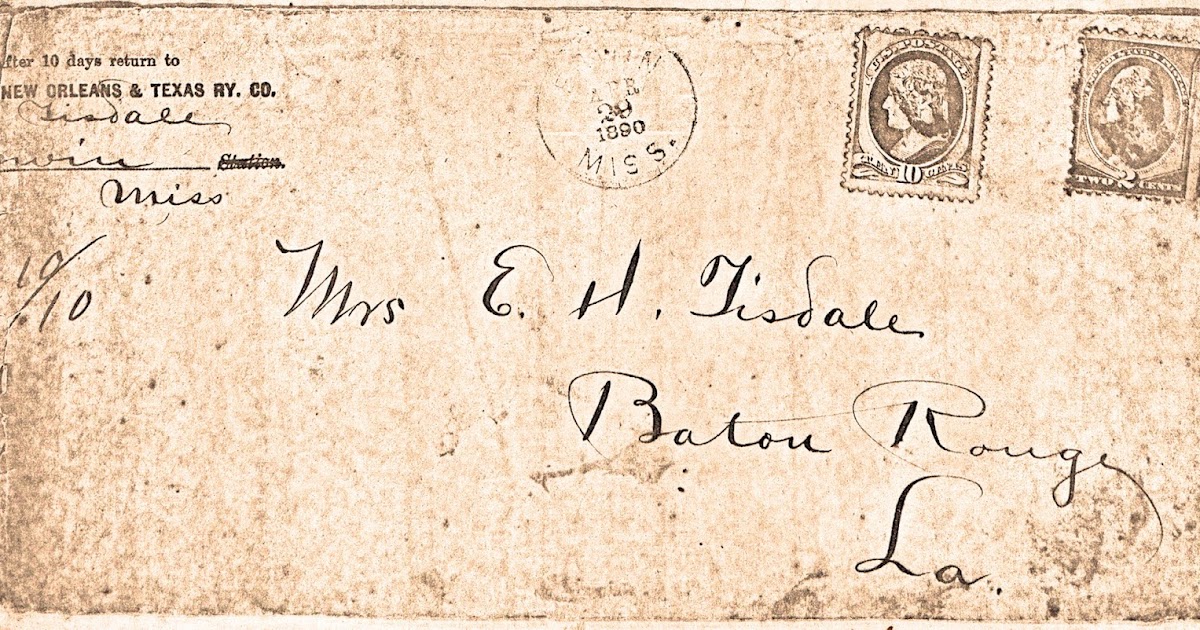 After 10 days return to
NEW ORLEANS & TEXAS RY. CO.
Tisdale
Station.
Miss
APR
29
1890
MISS.
U.S. POSTAGE
10
TWO 2 CENTS
10/10
Mrs E. H. Tisdale
Baton Rouge
La.